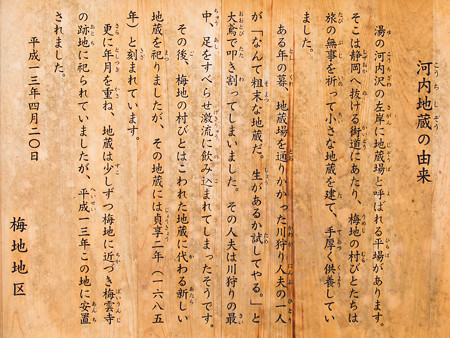 河内地蔵の由来
湯の河内沢の左岸に地蔵場と呼ばれる平場があります。
そこは静岡へ抜ける街道にあたり、梅地の村びとたちは
旅の無事を祈って小さな地蔵を建て、手厚く供養してい
ました。
ある年の暮、地蔵場を通りかかった川狩り人夫の一人
が「なんて粗末な地蔵だ。生があるか試してやる。」と
大鳶で叩き割ってしまいました。その人夫は川狩りの最
中、足をすべらせ激流に飲み込まれてしまったそうです。
その後、梅地の村びとはこわれた地蔵に代わる新しい
地蔵を祀りましたが、その地蔵には貞享二年（一六八五
年）と刻まれています。
更に年月を重ね、地蔵は少しずつ梅地に近づき梅雲寺
の跡地に祀られていましたが、平成一三年この地に安置
されました。
平成一三年四月二〇日
梅地地区